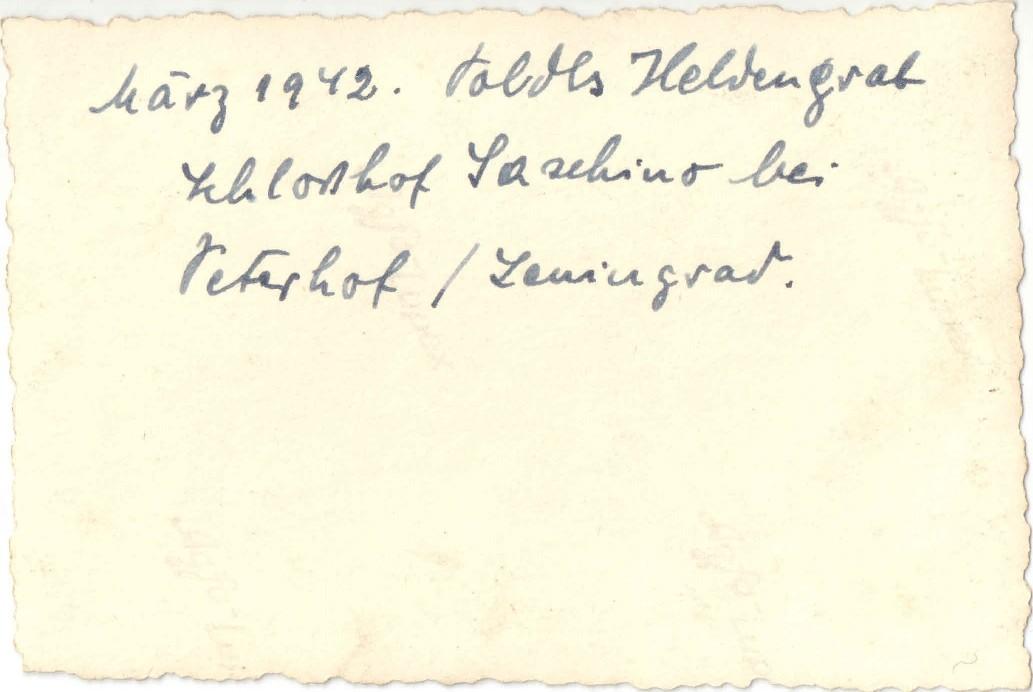 März 1942. Poldls Heldengrab
Schloßhof Saschino bei
Peterhof / Leningrad.